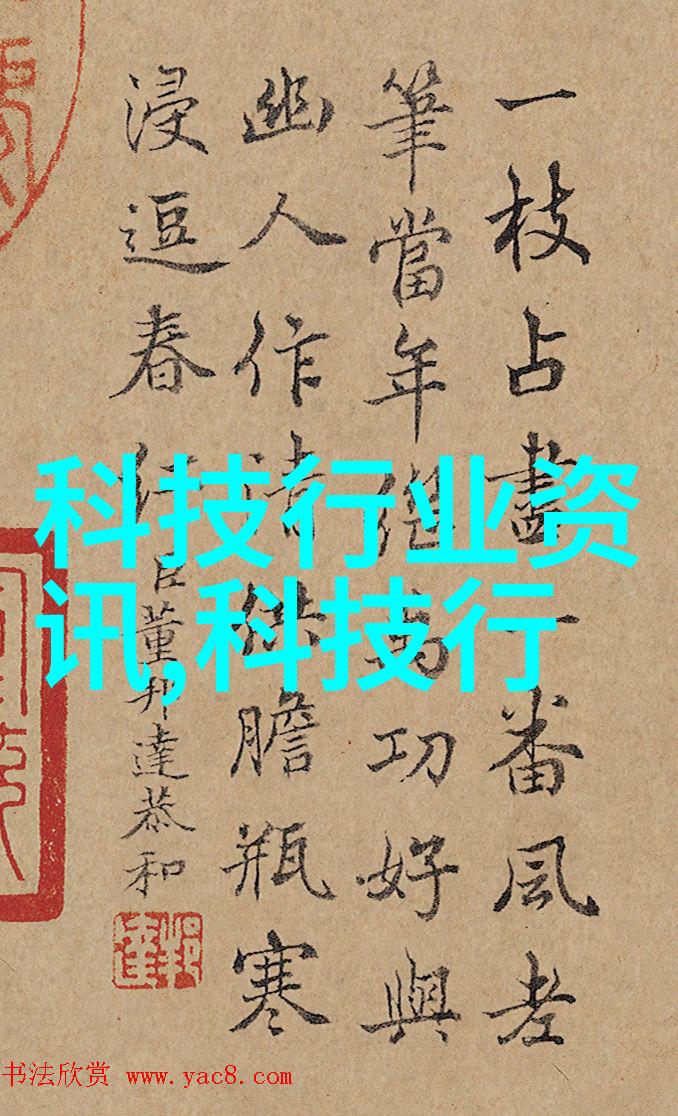 一枝占盡一番風老
筆當年繼為功好與
幽人作清供膽瓶寒
浸逗春紅臣董邦達恭和
科技行业资
讯,科技行
书法欣赏 www.yac8.com